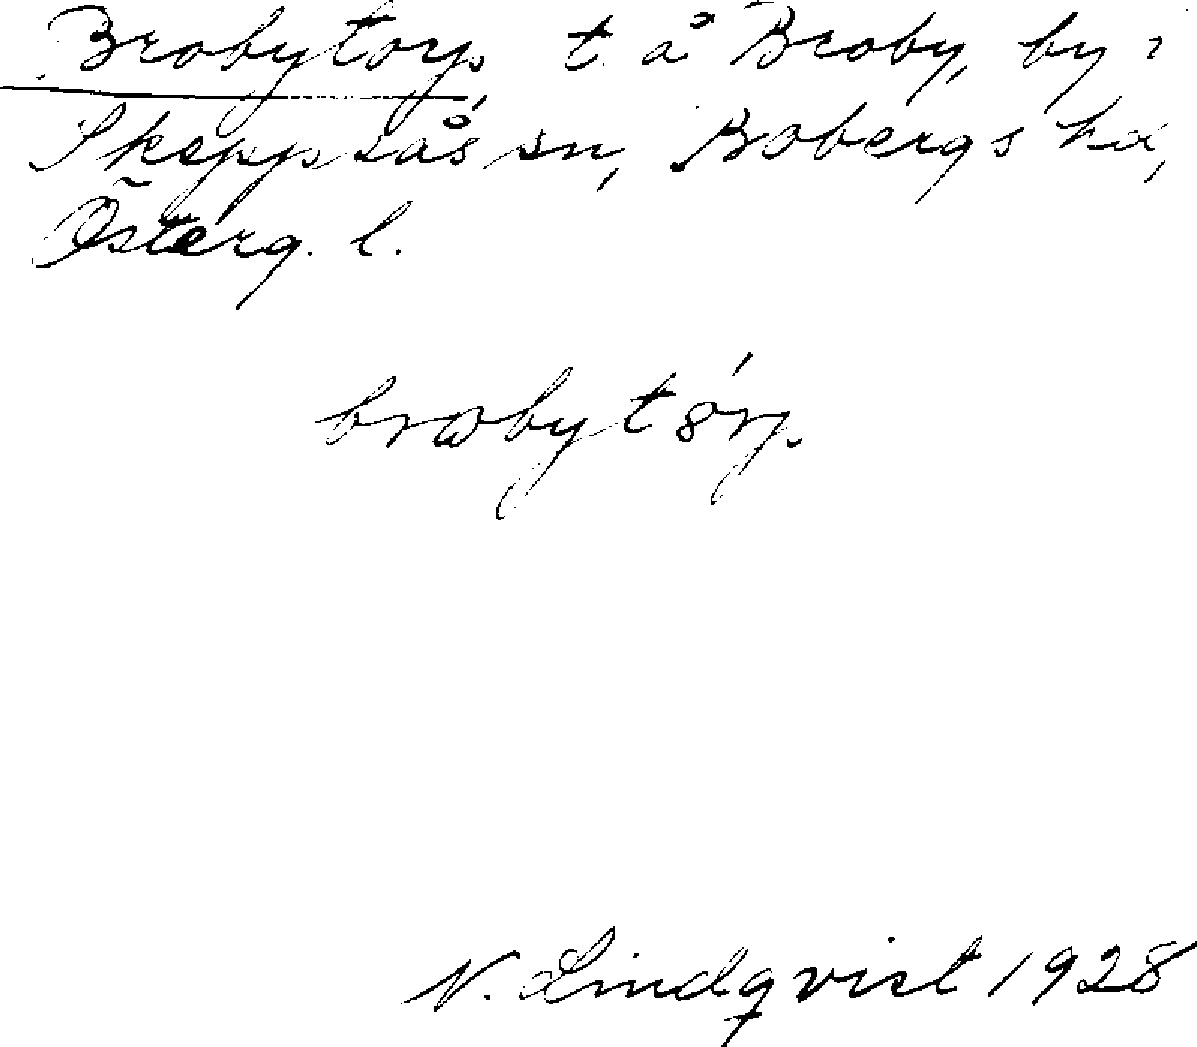 Brobytorp, t. å Broby, by i
Skeppsås sn, Bobergs hd,
Österg. l.
N. Lindqvist 1928